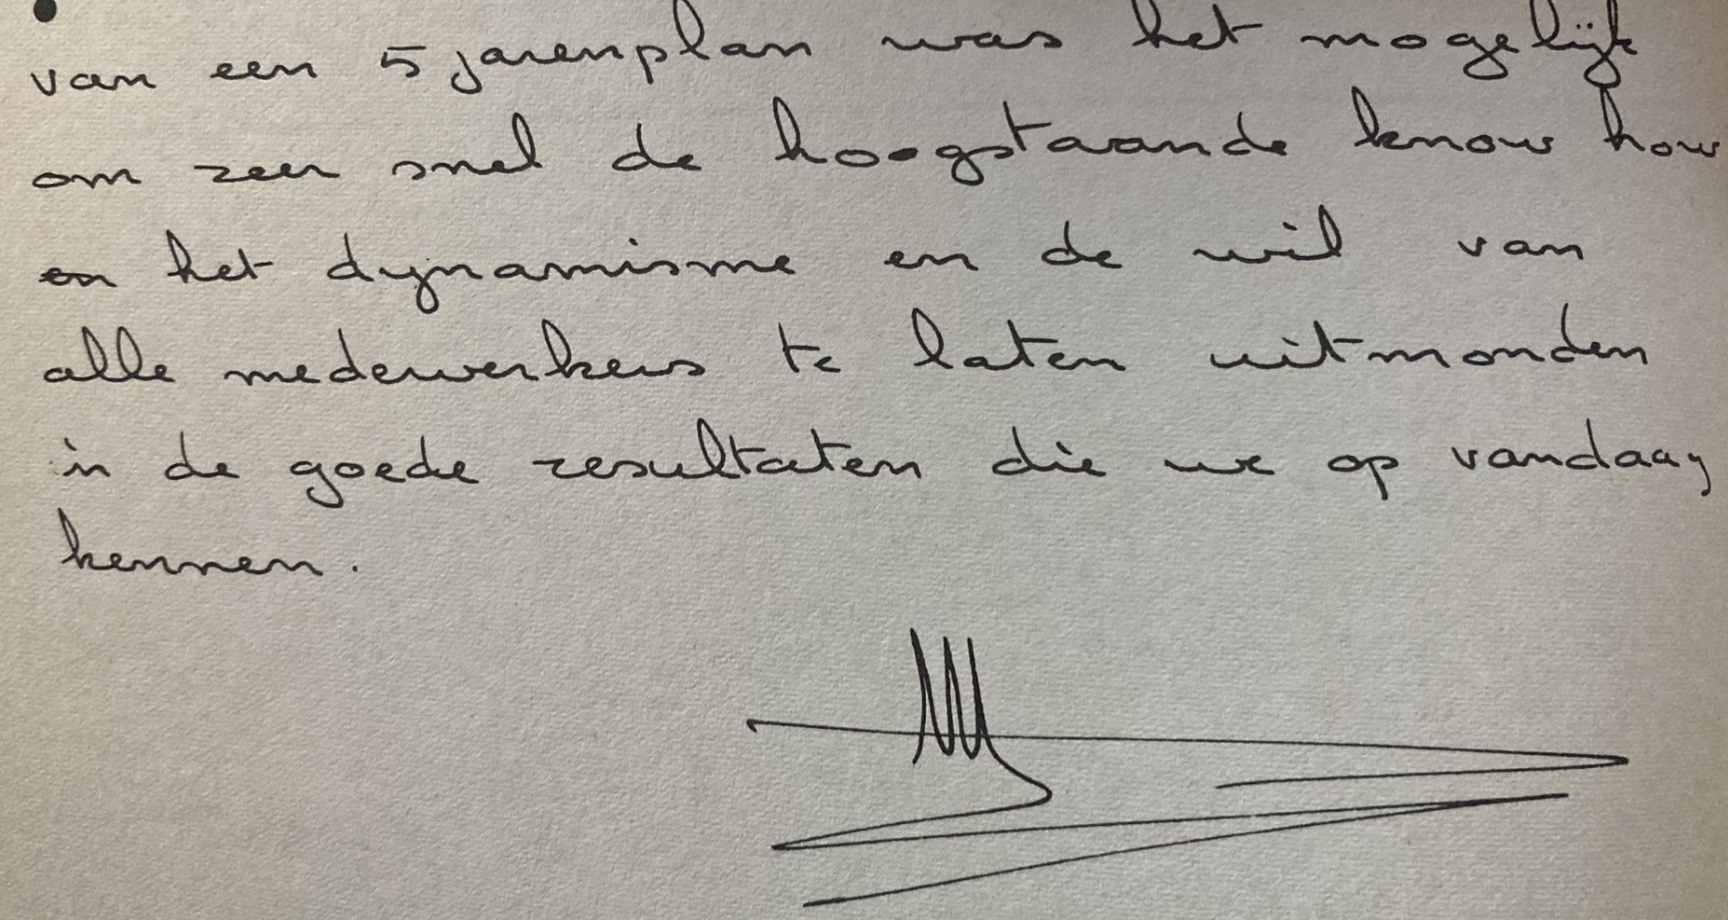 van een 5 jarenplan was het mogelijk
om zeer snel de hoogstaande know how
en het dynamisme en de wil van
alle medewerkers te laten uitmonden
in de goede resultaten die we op vandaag
kennen.